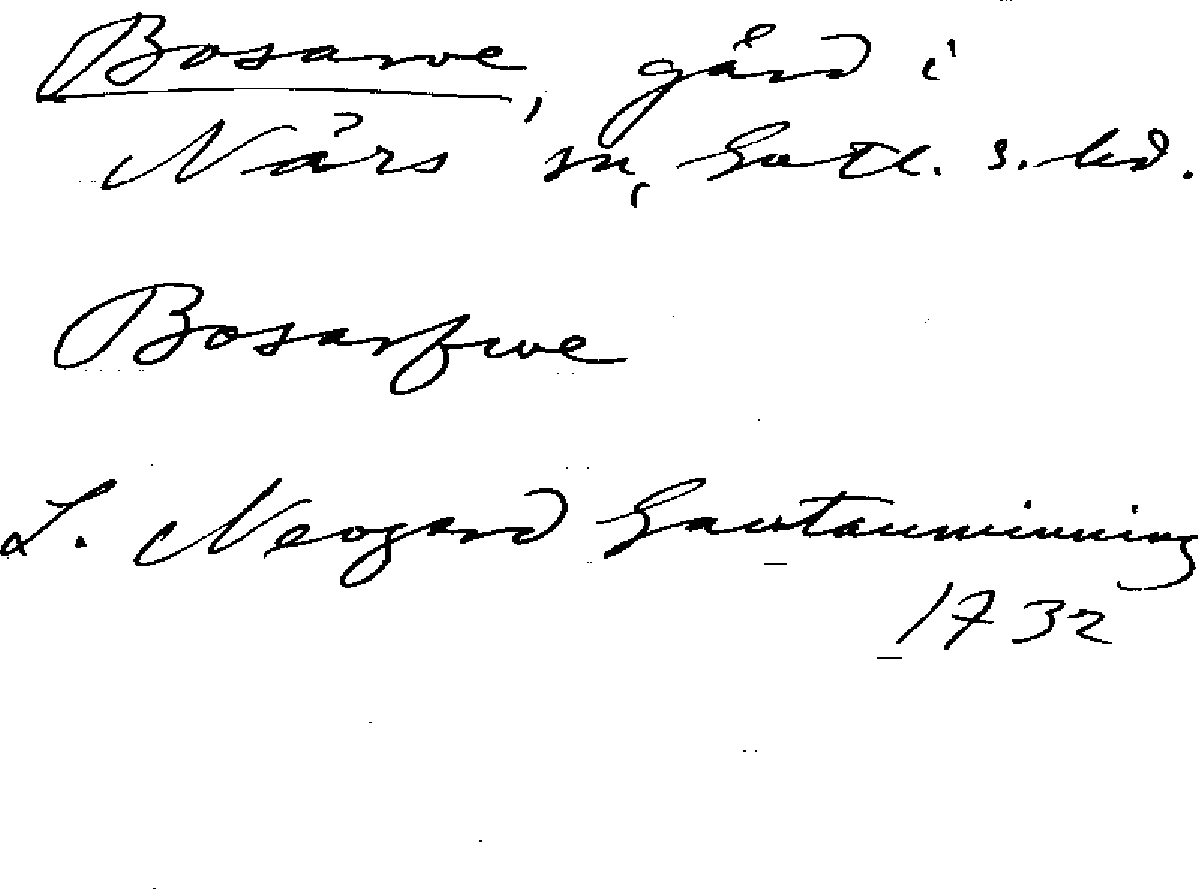 Bosarve, gård i
Närs sn, Gotl. s. hd.
Bosarfwe
L. Neogard Gautauminning
1732